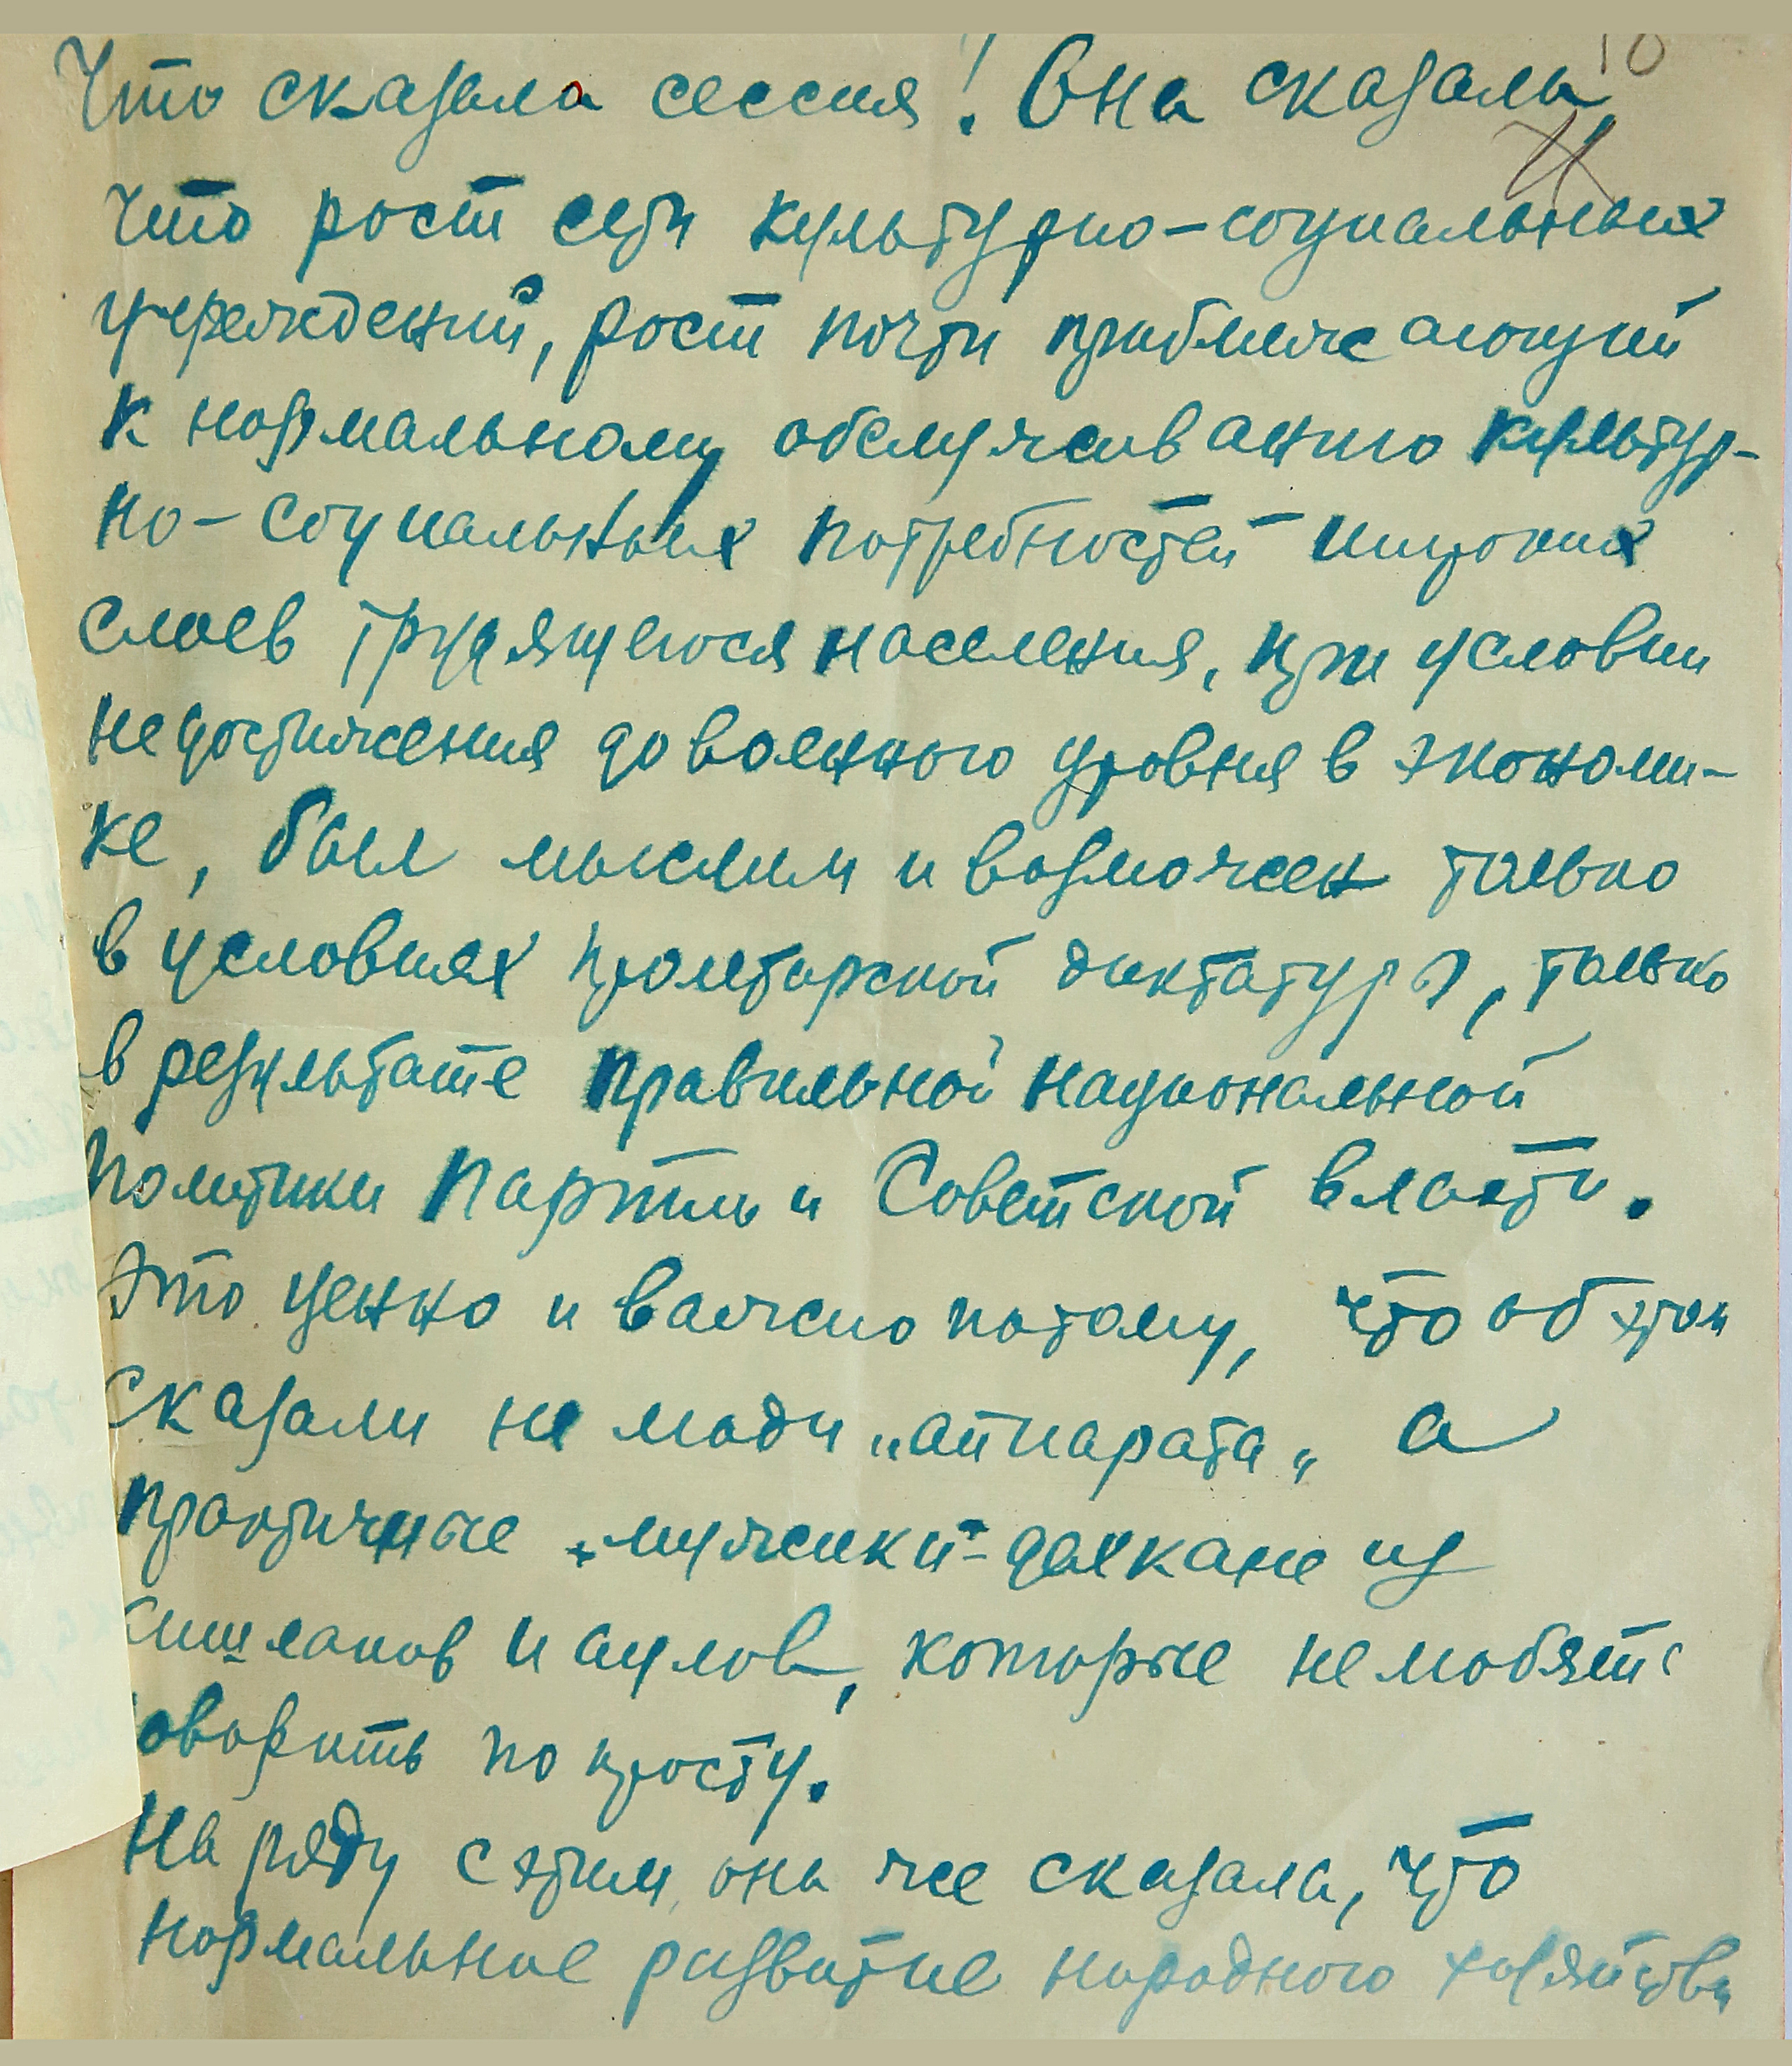 Что сказала сессия! Она сказала,
10
11
что рост сети культурно-социальных
учреждений, рост почти приближающий
к нормальному обслуживанию культур-
но-социальных потребностей широких
слоев трудящегося населения, при условии
недостижения довоенного уровня в экономи-
ке, был мыслим и возможен только
в условиях пролетарской диктатуры, только
в результате правильной национальной
политики Партии и Советской власти.
Это ценно и важно потому, что об этом
сказали не люди „аппарата„ а
практичные „мужики"-дехкане из
кишлаков и аулов, которые не любят
говорить по просту.
На ряду с этим она же сказала, что
нормальное развитие народного хозяйства